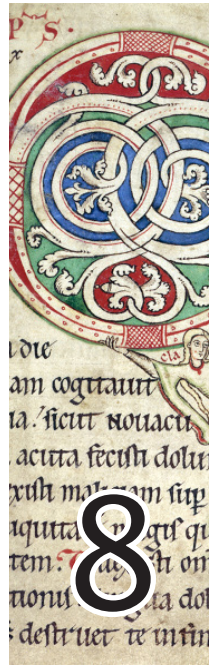 P S.
x
die
cla
am cogitauit
ia. sicut nouacu
acuta fecisti dolu
xisti mal am sup
iquita gis qu
tem. sti om
tionis a dol
destruet te in fin
8